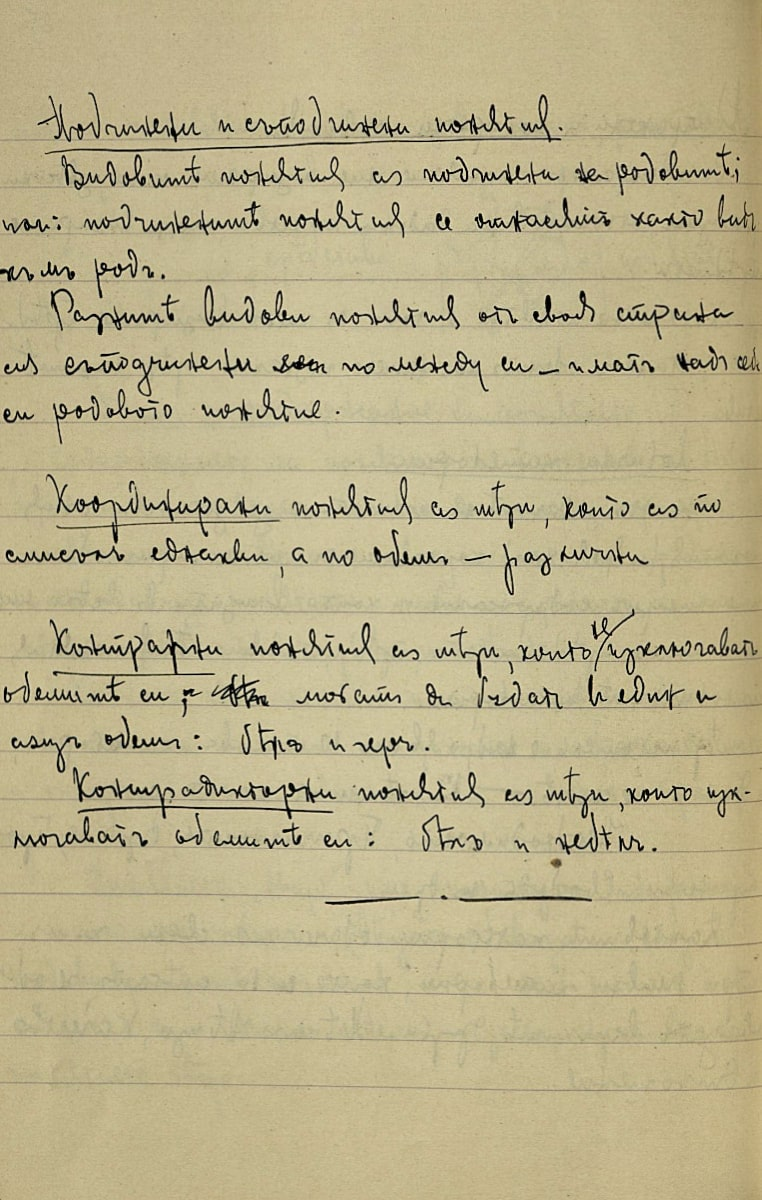 Подчинени и съподчинени понятия.
Видовитѣ понятия са подчинени на родовитѣ;
или: подчиненитѣ понятия се отнасятъ както видъ
къмъ родъ.
Разнитѣ видови понятия отъ своя страна
са съподчинени по между си — иматъ надъ себе
си родовото понятие.
Координирани понятия са тѣзи, които са по
смисълъ еднакви, а по обемъ — различни
Контрарни понятия са тѣзи, които не изключаватъ
обемитѣ си; могатъ да бѫдатъ въ единъ и
сѫщъ обемъ: бѣлъ и черъ.
Контрадикторни понятия са тѣзи, които изк-
лючаватъ обемитѣ си: бѣлъ и небѣлъ.